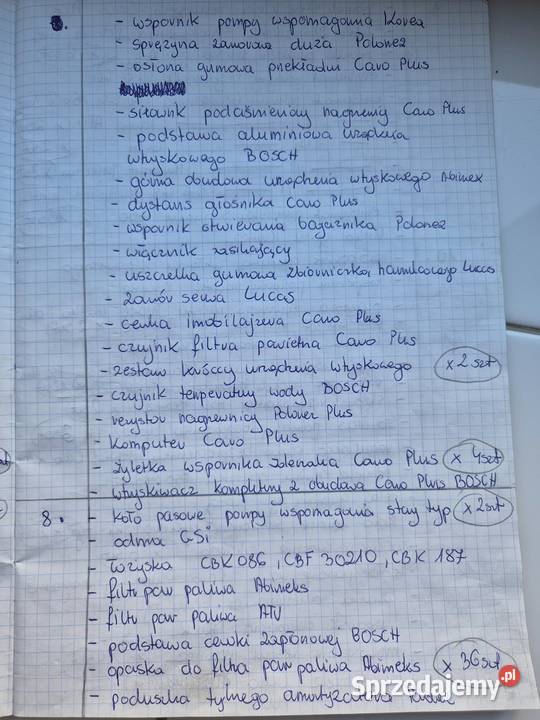 - wspornik pompy wspomagania Korea
- sprężyna zaworowa duża Polonez
- osłona gumowa przekładni Caro Plus
- siłownik podciśnieniowy nagrzewnicy Caro Plus
- podstawa aluminiowa urządzenia
wtryskowego BOSCH
- górna obudowa urządzenia wtryskowego Abimex
- dystans głośnika Caro Plus
- wspornik otwierania bagażnika Polonez
- włącznik zasilający
- uszczelka gumowa zbiorniczka hamulcowego Lucas
- zawór serwa Lucas
- cewka imobilajzera Caro Plus
- czujnik filtra powietrza Caro Plus
- zestaw króćcy urządzenia wtryskowego x 2 szt
- czujnik temperatury wody BOSCH
- rezystor nagrzewnicy Polonez Plus
- komputer Caro Plus
- żyletka wspornika zderzaka Caro Plus x 4szt
- wtryskiwacz kompletny z obudową Caro Plus BOSCH
8. - koło pasowe pompy wspomagania stary typ x 2szt
- odma GSi
- łożyska CBK 086, CBF 30210, CBK 187
- filtr par paliwa Abimeks
- filtr par paliwa ATU
- podstawa cewki zapłonowej BOSCH
- opaska do filtra par paliwa Abimeks x 36 szt
- poduszka tylnego amortyzatora
Sprzedajemy.pl